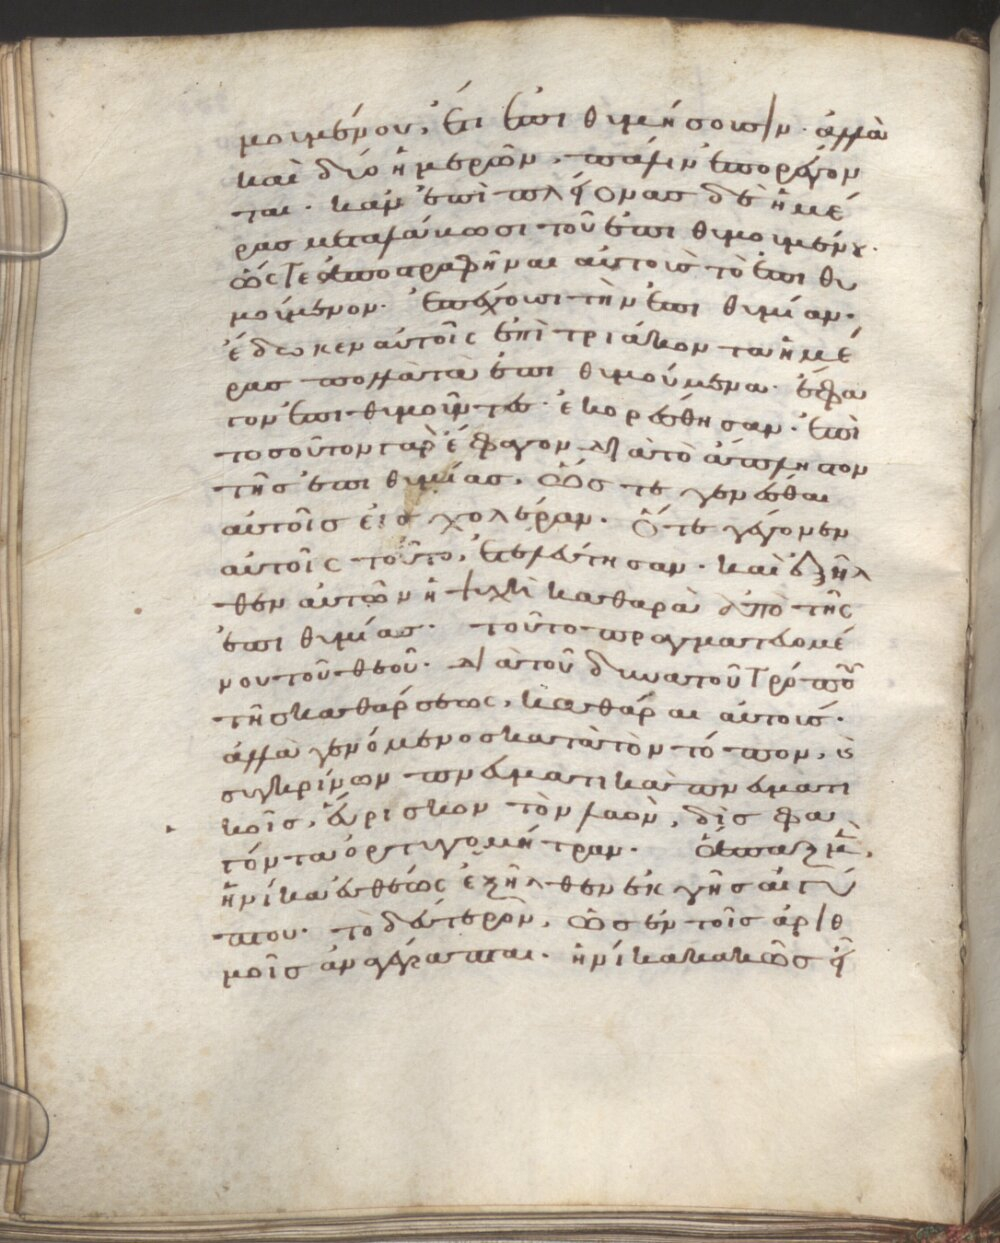 μουμένου, ἔτι ἐπιθυμήσουσιν· ἀλλὰ
καὶ δύο ἡμερῶν, πάλιν ἐπορέγον
ται· κἂν ἐπὶ πλείονας δὲ ἡμέ
ρας μεταλάβωσι τοῦ ἐπιθυμουμένου·
ὥστε ἀποστραφῆναι αὐτοῖς τὸ ἐπιθυ
μούμενον· ἐπέχουσι τὴν ἐπιθυμίαν·
ἔδωκεν αὐτοῖς ἐπὶ τριάκοντα ἡμέ
ρας πολλὰ τὰ ἐπιθυμούμενα· ἔφα
γον ἐπιθυμοῦντες· ἐκορέσθησαν· ἐπὶ
τοσοῦτον γὰρ ἔφαγον διὰ τὸ ἄπληστον
τῆς ἐπιθυμίας, ὥς τε γενέσθαι
αὐτοῖς εἰς χολέραν· ὅτε γέγονεν
αὐτοῖς τοῦτο, ἐτελεύτησαν· καὶ ἐξῆλ
θεν αὐτῶν ἡ ψυχὴ καθαρὰ ἀπὸ τῆς
ἐπιθυμίας· τοῦτο πραγματευομέ
νου τοῦ θεοῦ· διὰ τοῦ δυνατοῦ τρόπου
τῆς καθάρσεως, καθάραι αὐτούς·
ἀλλὰ γενόμενος κατὰ τὸν τόπον, καὶ
συγκρίνων πνευματικὰ πνευματι
κοῖς, εὕρισκον τὸν λαὸν, δὶς φα
γόντα ὀρτυγομήτραν· ἅπαξ μὲν,
ἡνίκα εὐθέως ἐξῆλθεν ἐκ γῆς αἰγύ
πτου· τὸ δεύτερον, ὡς ἐν τοῖς ἀριθ
μοῖς ἀναγέγραπται· ἡνίκα κακῶς εἰ